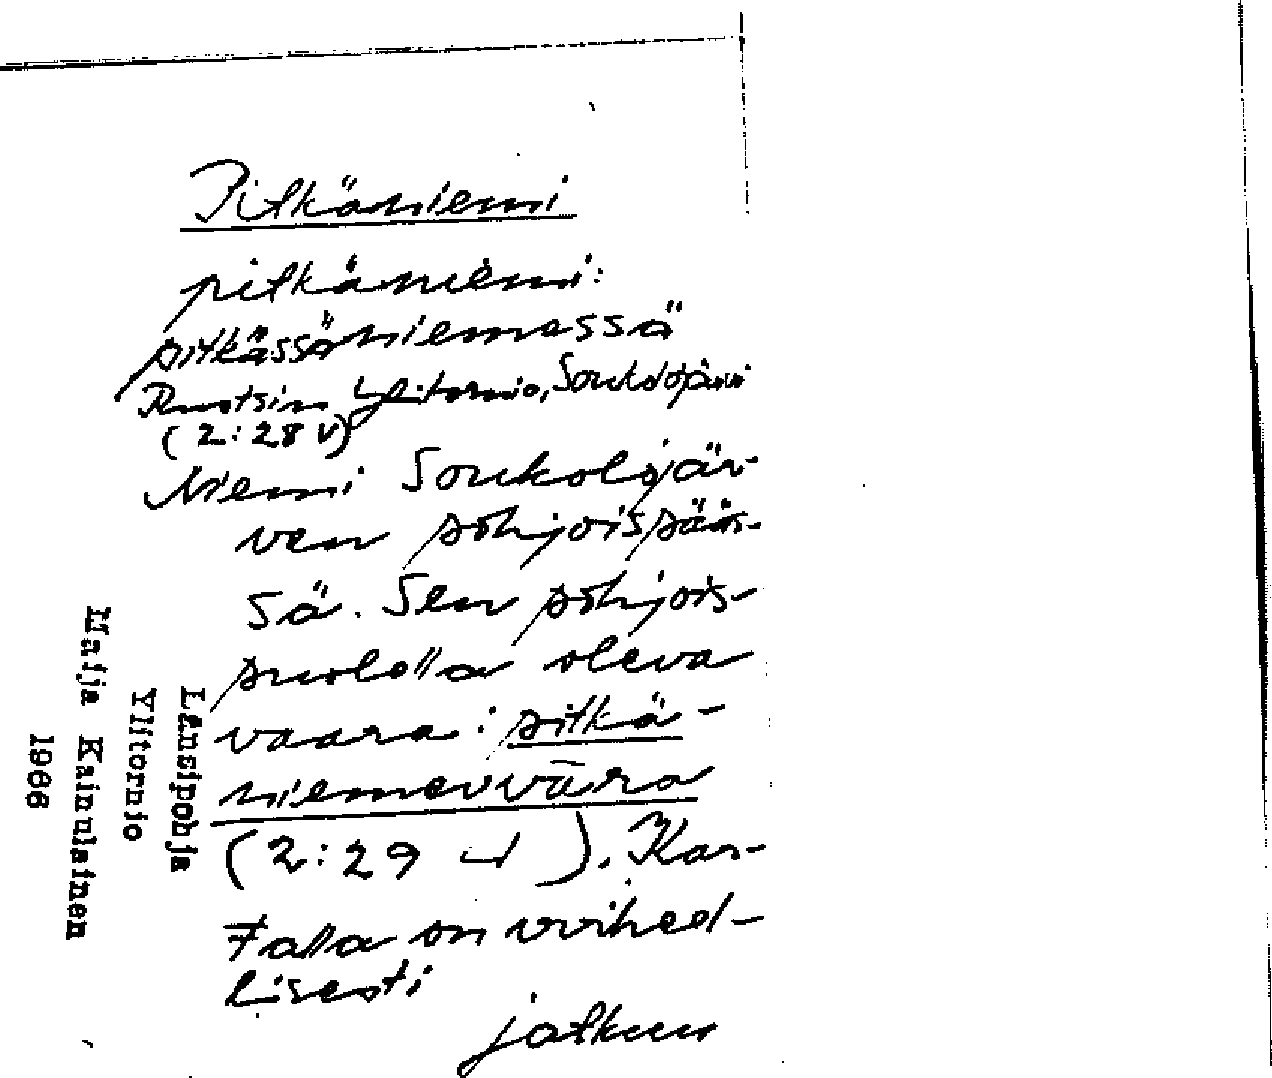 Pitkäniemi
pitkäniemi:
pitkässäniemessä
Ruotsin Ylitornio, Soukolojärvi
(2:28 V)
Niemi Soukolojär-
ven pohjoispääs-
sä. Sen pohjois-
puolella oleva
vaara: pitkä-
niemevvāra
(2:29 ). Kar-
talla on virheel-
lisesti
jatkuu
Länsipohja
Ylitornio
Maija Kainulainen
1966